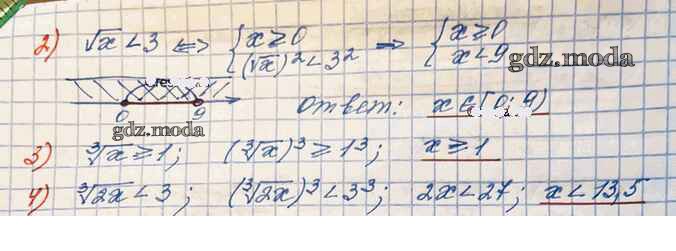 2) √x < 3 ⇔ { x ≥ 0 (√x)² < 3² ⇒ { x ≥ 0 x < 9
gdz.moda
0 9 Ответ: x ∈ [0; 9)
gdz.moda
3) ∛x ≥ 1; (∛x)³ ≥ 1³; x ≥ 1
4) ∛2x < 3; (∛2x)³ < 3³; 2x < 27; x < 13,5